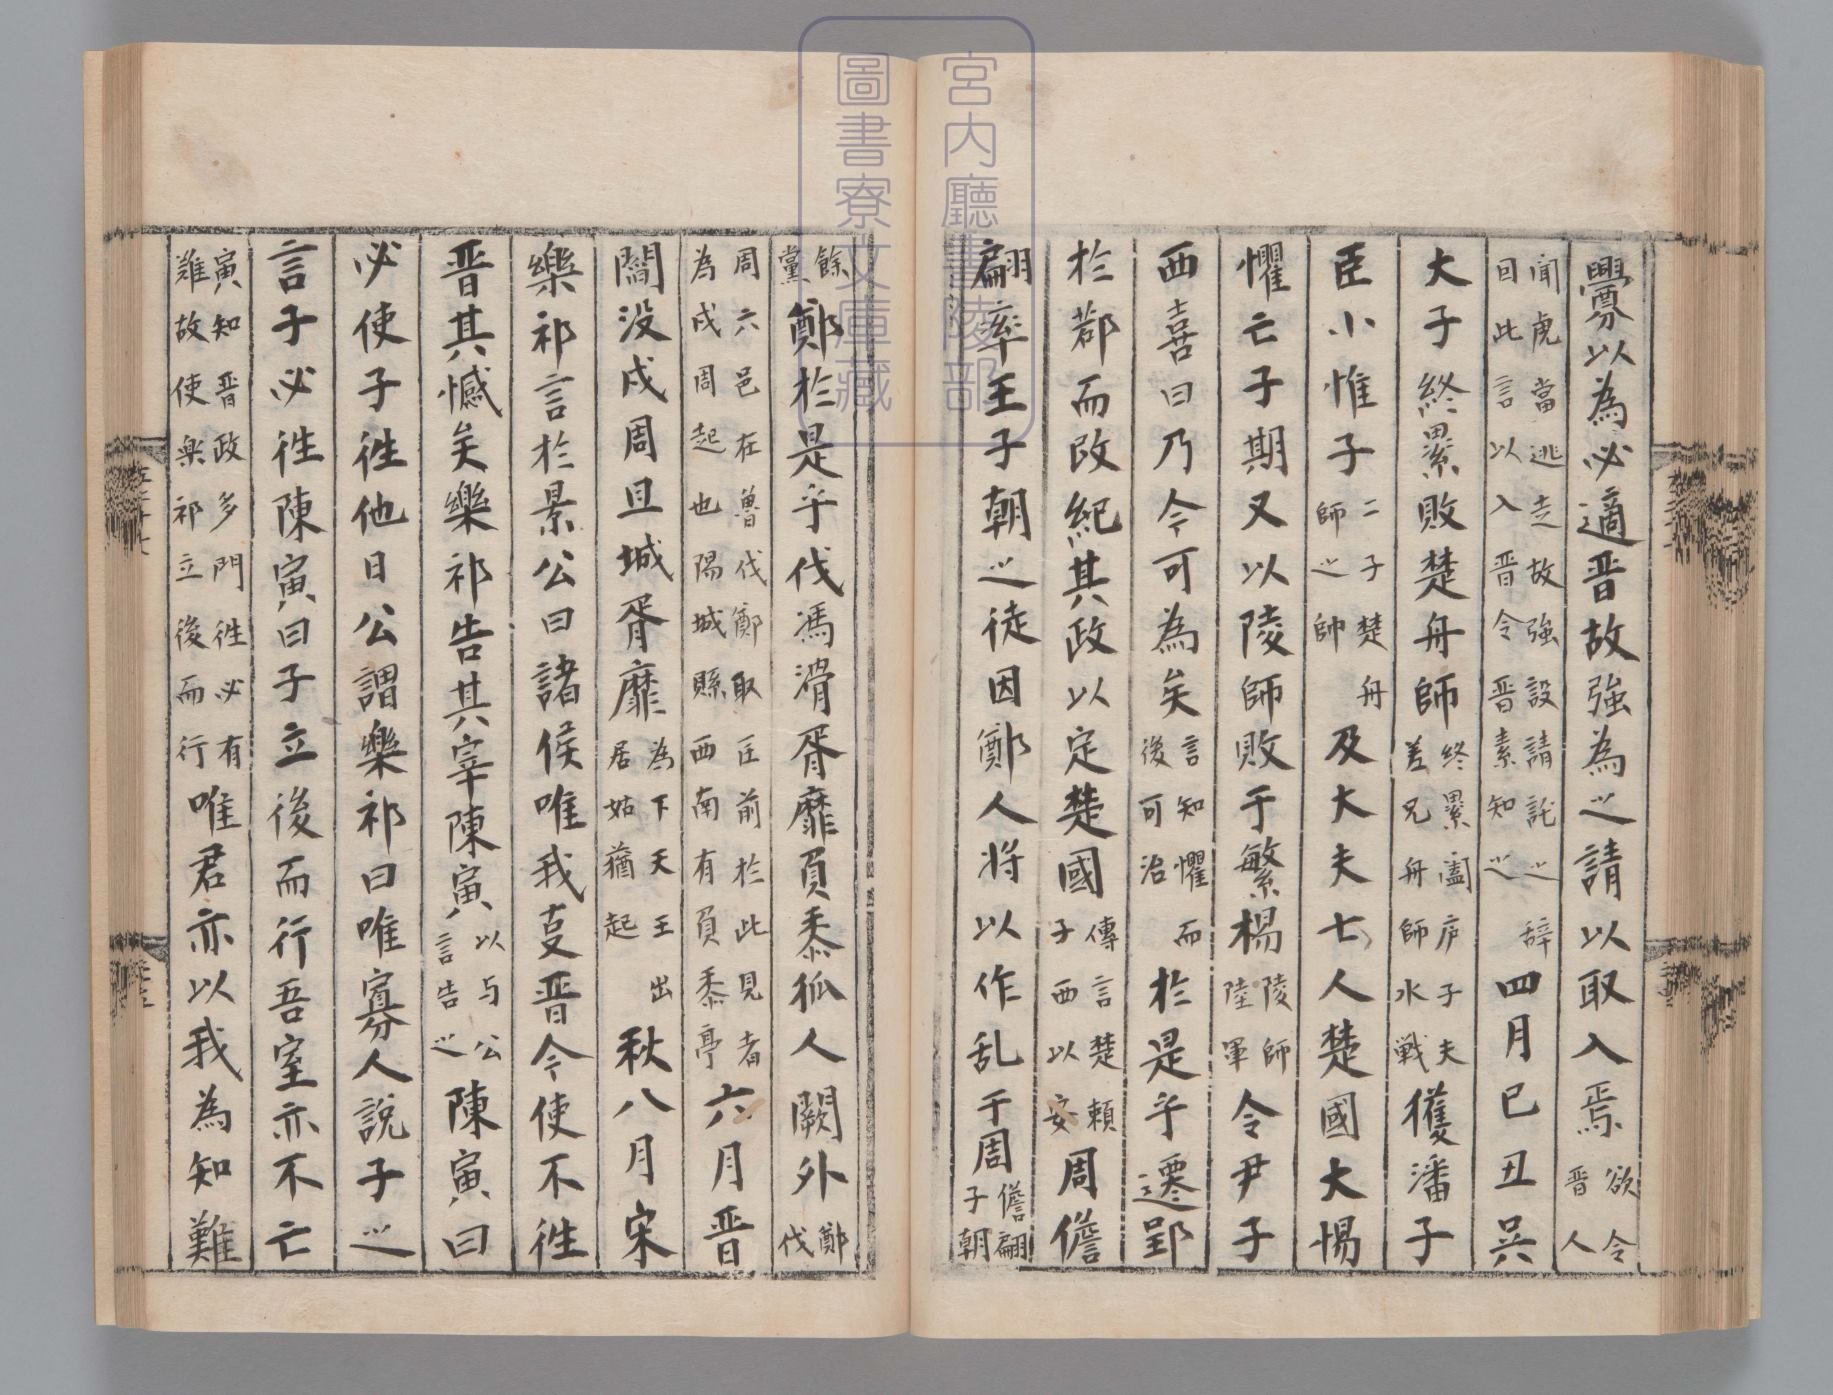 釁以為必適晋故強為之請以取入焉欲令晋人
聞虎當逃走故強設請託之辞因此言以入晋令晋素知之四月己丑吳
大子終累敗楚舟師終累闔庐子夫差兄舟師水戦獲潘子
臣小惟子二子楚舟師之帥及大夫七人楚國大惕
懼亡子期又以陵師敗于繁楊陵師陸軍令尹子
西喜曰乃今可為矣言知懼而後可治於是乎遷郢
於鄀而改紀其政以定楚國傳言楚頼子西以安周儋
翩率王子朝之徒因鄭人将以作乱于周儋翩子朝
餘黨鄭於是乎伐馮滑胥靡負黍狐人闕外鄭伐
周六邑在魯伐鄭取匡前於此見者為戍周起也陽城縣西南有負黍亭六月晋
閻没戍周且城胥靡為下天王出居姑蕕起秋八月宋
樂祁言於景公曰諸侯唯我叓晋今使不徃
晋其憾矣樂祁告其宰陳寅以与公言告之陳寅曰
必使子徃他日公謂樂祁曰唯寡人說子之
言子必徃陳寅曰子立後而行吾室亦不亡
寅知晋政多門徃必有難故使楽祁立後而行唯君亦以我為知難
宮内廳書陵部
圖書寮文庫藏